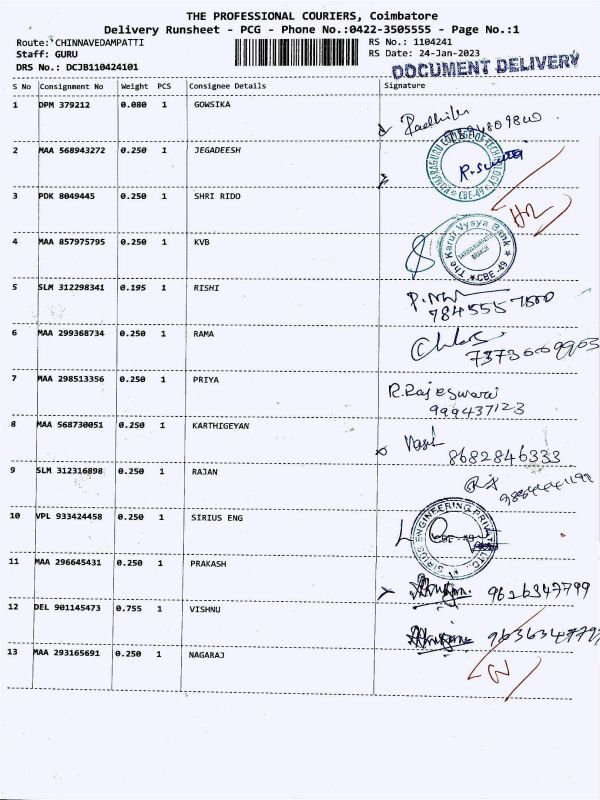 THE PROFESSIONAL COURIERS, Coimbatore
Delivery Runsheet - PCG - Phone No.:0422-3505555 - Page No.:1
Route: CHINNAVEDAMPATTI RS No.: 1104241
Staff: GURU RS Date: 24-Jan-2023
DRS No.: DCJB110424101
DOCUMENT DELIVERY
S No Consignment No Weight PCS Consignee Details Signature
1 DPM 379212 0.080 1 GOWSIKA
2 MAA 568943272 0.250 1 JEGADEESH
KUMARAGURU COLLEGE OF TECHNOLOGY CBE-49
3 PDK 8049445 0.250 1 SHRI RIDO
4 MAA 857975795 0.250 1 KVB
The Karur Vysya Bank CBE-49
5 SLM 312298341 0.195 1 RISHI
7845557500
6 MAA 299368734 0.250 1 RAMA
7 MAA 298513356 0.250 1 PRIYA
R.Rajeswari
999437123
8 MAA 568730051 0.250 1 KARTHIGEYAN
8682846333
9 SLM 312316898 0.250 1 RAJAN
10 VPL 933424458 0.250 1 SIRIUS ENG
SIRIUS ENGINEERING PRIVATE LTD. CBE-49
11 MAA 296645431 0.250 1 PRAKASH
9626347799
12 DEL 901145473 0.755 1 VISHNU
13 MAA 293165691 0.250 1 NAGARAJ